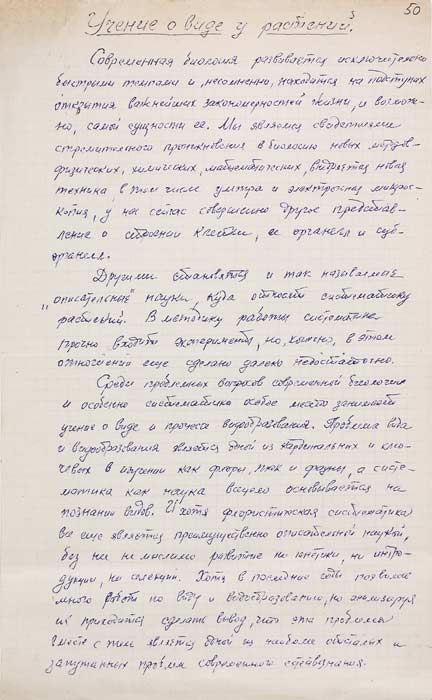 50
Учение о виде у растений.
Современная биология развивается исключительно
быстрыми темпами и несомненно, находится на подступах
открытия важнейших закономерностей жизни, и возмож-
но, самой сущности ее. Мы являемся свидетелями
стремительного проникновения в биологию новых методов
физических, химических, математических, внедряется новая
техника в том числе ультра и электронная микрос-
копия, у нас сейчас совершенно другое представ-
ление о строении клетки, ее органелл и суб-
органелл.
Другими становятся и так называемые
"описательные" науки, куда относят систематику
растений. В методику работы систематика
прочно входит эксперимент, но, конечно, в этом
отношении еще сделано далеко недостаточно.
Среди проблемных вопросов современной биологии
и особенно систематики особое место занимает
учение о виде и процесс видообразования. Проблема вида
и видообразования является одной из кардинальных и клю-
чевых в изучении как флоры, так и фауны, а систе-
матика как наука всецело основывается на
познании видов. И хотя флористическая систематика
все еще является преимущественно описательной наукой,
без нее не мыслимо развитие ни генетики, ни интро-
дукции, ни селекции. Хотя в последние годы появилось
много работ по виду и видообразованию, но анализируя
их приходится сделать вывод, что эта проблема
вместе с тем является одной из наиболее отсталых и
запутанных проблем современного естествознания.